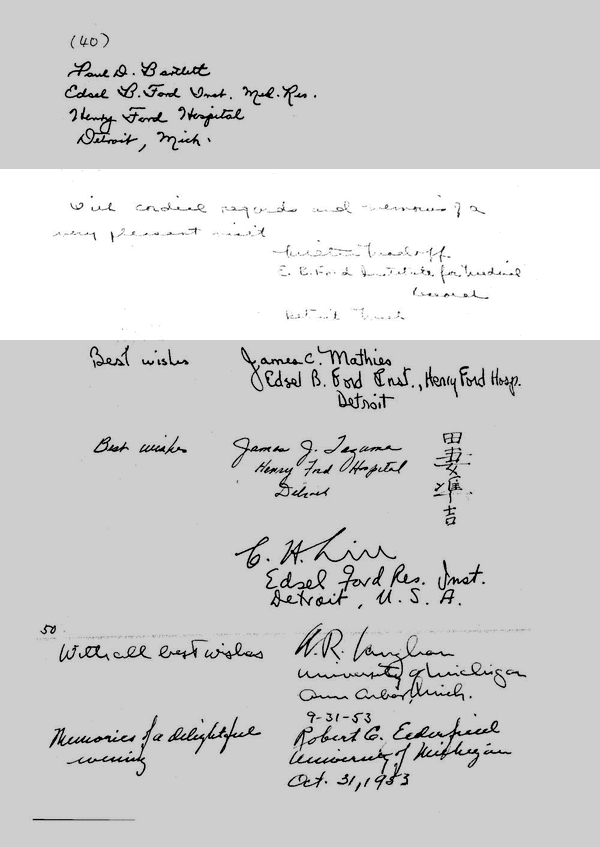 (40)
Paul D. Bartlett
Edsel B. Ford Inst. Med. Res.
Henry Ford Hospital
Detroit, Mich.
With cordial regards and memories of a
very pleasant visit
E. B. Ford Institute for Medical
Research
Detroit Mich
Best wishes James C. Mathies
Edsel B. Ford Inst., Henry Ford Hosp.
Detroit
Best wishes James J. Tazuma
Henry Ford Hospital
Detroit
田
吉
C. H. Liu
Edsel Ford Res. Inst.
Detroit, U. S. A.
50
With all best wishes W. R. Vaughan
University of Michigan
Ann Arbor, Mich.
9-31-53
Memories of a delightful Robert C. Elderfield
evening University of Michigan
Oct. 31, 1953